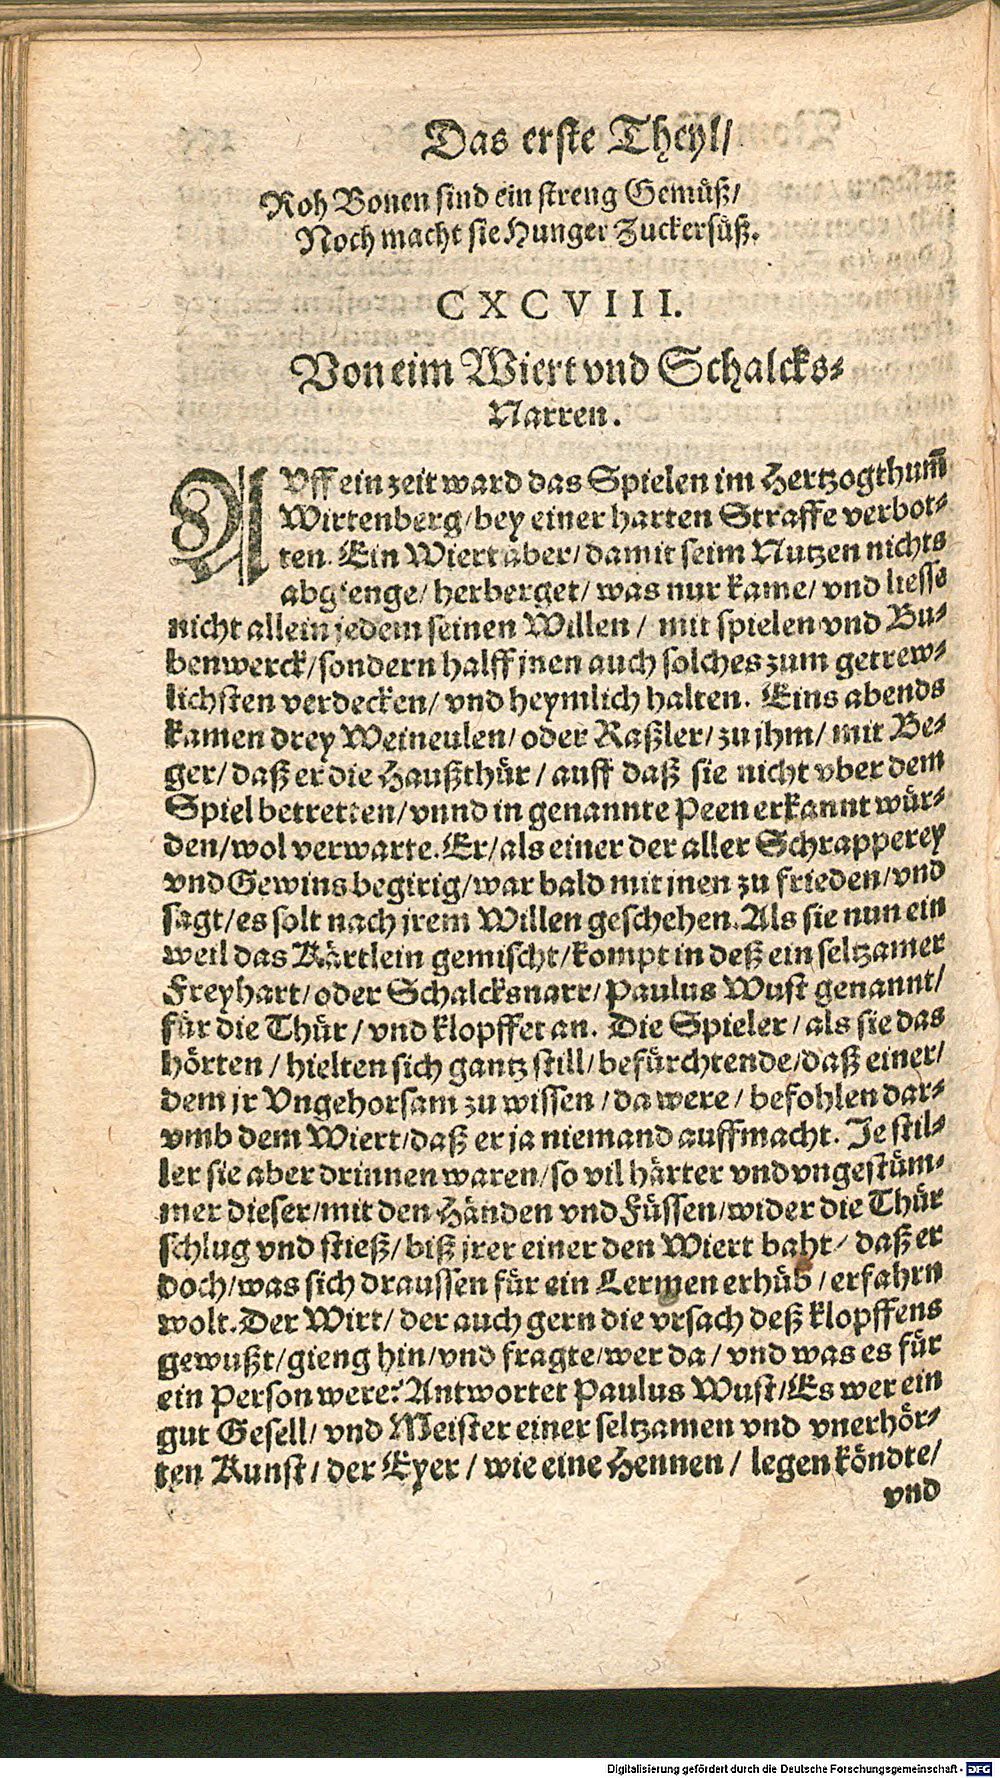 Das erste Theyl/
Roh Bonen sind ein streng Gemüß/
Noch macht sie Hunger Zuckersüß.
CXCVIII.
Von eim Wiert vnd Schalcks-
Narren.
AUff ein zeit ward das Spielen im Hertzogthum̃
Wirtenberg/bey einer harten Straffe verbot-
ten. Ein Wiert aber/damit seim Nutzen nichts
abgienge/ herberget/ was nur kame/ vnd liesse
nicht allein jedem seinen Willen / mit spielen vnd Bu-
benwerck/sondern halff jnen auch solches zum getrew-
lichsten verdecken/ vnd heymlich halten. Eins abends
kamen drey Weineulen/ oder Raßler/ zu ihm/ mit Be-
ger/ daß er die Haußthür / auff daß sie nicht vber dem
Spiel betretten/vnnd in genannte Peen erkannt wür-
den/wol verwarte. Er/als einer der aller Schrapperey
vnd Gewins begirig/war bald mit jnen zu frieden/vnd
sagt/es solt nach jrem Willen geschehen. Als sie nun ein
weil das Kärtlein gemischt/kompt in deß ein seltzamer
Freyhart/oder Schalcksnarr/Paulus Wust genannt/
für die Thür / vnd klopffet an. Die Spieler / als sie das
hörten / hielten sich gantz still/ befürchtende/daß einer/
dem jr Vngehorsam zu wissen / da were / befohlen dar-
vmb dem Wiert/daß er ja niemand auffmacht. Je stil-
ler sie aber drinnen waren/so vil härter vnd vngestüm-
mer dieser/mit den Händen vnd Füssen/wider die Thür
schlug vnd stieß/ biß jrer einer den Wiert baht/ daß er
doch/was sich draussen für ein Lermen erhüb / erfahrn
wolt. Der Wirt/ der auch gern die vrsach deß klopffens
gewußt/gieng hin/vnd fragte/wer da / vnd was es für
ein Person were? Antwortet Paulus Wust/Es wer ein
gut Gesell/ vnd Meister einer seltzamen vnd vnerhör-
ten Kunst/ der Eyer / wie eine Hennen / legen köndte/
vnd
Digitalisierung gefördert durch die Deutsche Forschungsgemeinschaft - DFG